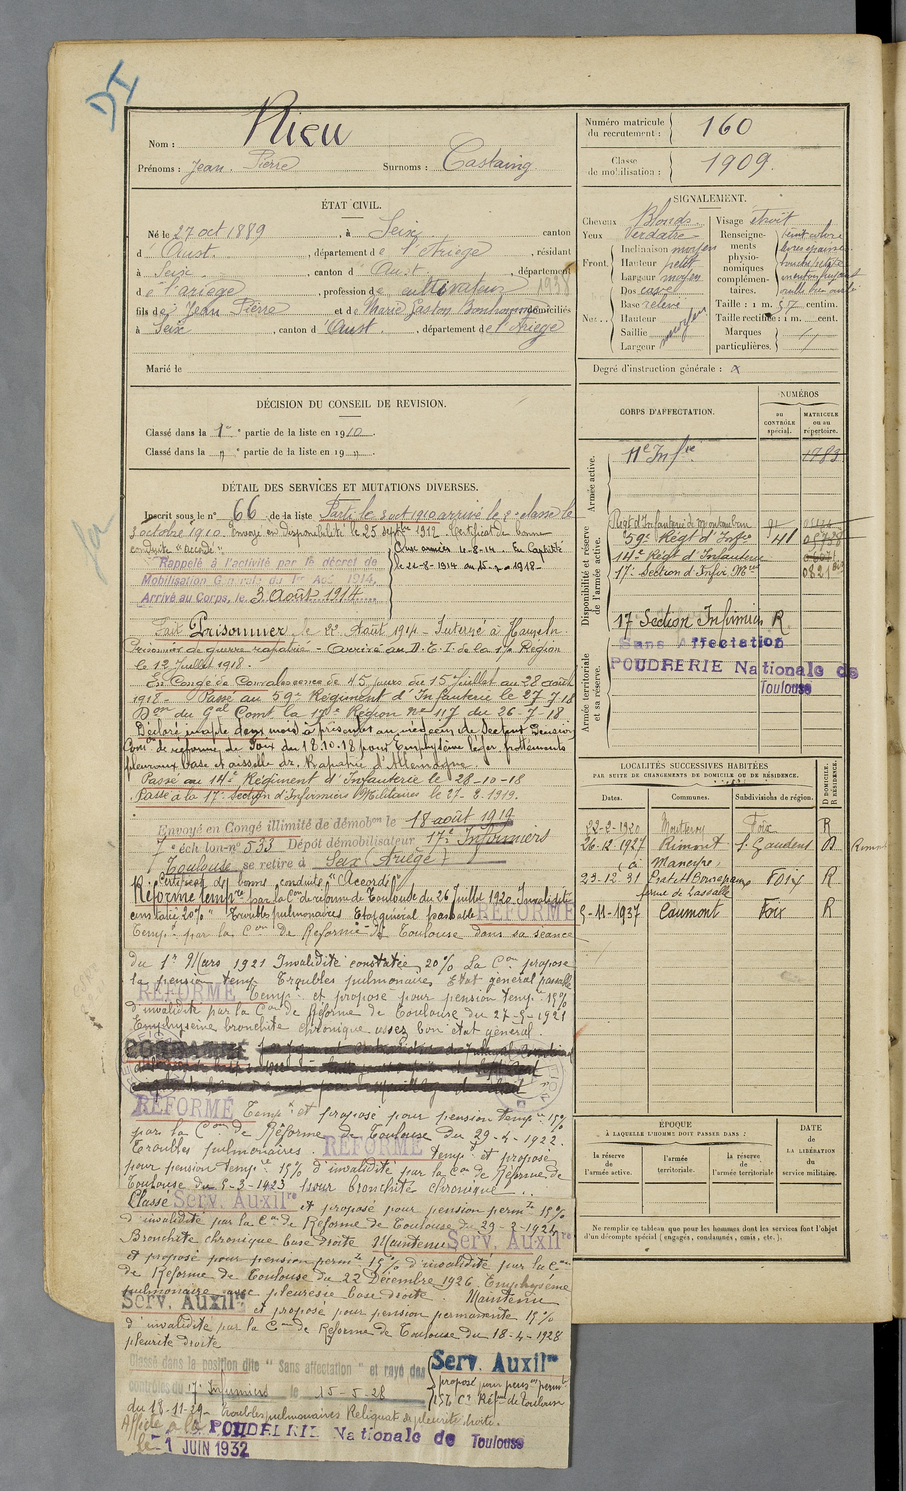 DI
Nom : Rieu
Prénoms : Jean. Pierre Surnoms : Castaing
ÉTAT CIVIL.
Né le 27 oct 1889, à Seix, canton
d' Oust, département de l'Ariège, résidant
à Seix, canton d' Oust, département
d e l'ariege, profession de cultivateur 1938
fils de Jean Pierre et de Marie domiciliés
à Seix, canton d' Oust, département de l'Ariège
Marié le
DÉCISION DU CONSEIL DE REVISION.
Classé dans la 1re partie de la liste en 1910.
Classé dans la " partie de la liste en 19 ".
DÉTAIL DES SERVICES ET MUTATIONS DIVERSES.
Inscrit sous le n° 66 de la liste Parti le 3 oct 1910 arrivé le 2e classe le
3 octobre 1910. Envoyé en disponibilité le 25 septbre 1912. Certificat de bonne
conduite "accordé"
Rappelé à l'activité par le décret de
Mobilisation Générale du 1er Août 1914,
Arrivé au Corps, le 3 Août 1914
Aux armées 4-8-14. En Captivité
le 22-8-1914 au 15-7-1918-
Fait Prisonnier le 22 Août 1914 - Interné à Hameln.
Prisonnier de guerre rapatrié - Arrivé au D.E.I. de la 17e Région
le 12 Juillet 1918.
En Congé de Convalescence de 45 jours du 15 Juillet au 28 août
1918 - Passé au 59e Régiment d'Infanterie le 27 7 18
Don du Gal Comt la 17e Région no 117 du 26-7-18
Déclaré inapte deux mois à présenter au médecin de secteur Décision
Comon de réforme de Foix du 18.10.18 pour Emphysème léger, frottements
pleuraux base et aisselle dr. Rapatrié d'Allemagne.
Passé au 14e Régiment d'Infanterie le 28-10-18
Passé à la 17e Section d'Infirmiers Militaires le 27-2-1919.
Envoyé en Congé illimité de démobon le 18 août 1919
7e échelon-n° 533 Dépôt démobilisateur 17e Infirmiers
Toulouse se retire à Seix (Ariège)
Certificat de bonne conduite "Accordé"
Réformé tempre par la Con de réforme de Toulouse du 26 Juillet 1920 Invalidité
constatée 20% "Troubles pulmonaires Etat général passable RÉFORMÉ
Tempre par la Con De Réforme de Toulouse dans sa séance
du 1er Mars 1921 Invalidité constatée, 20% La Con propose
la pension temp Troubles pulmonaires Etat général passable
RÉFORMÉ Tempre et proposé pour pension tempre 15%
d'invalidité par la Con de Réforme de Toulouse du 27-5-1921
Emphysème bronchite chronique assez bon état général.
RÉFORMÉ Tempre et proposé pour pension tempre 15%
par la Con de Réforme de Toulouse du 29-4-1922.
Troubles pulmonaires. RÉFORMÉ tempre et proposé
pour pension tempre 15% d'invalidité par la Con de Réforme de
Toulouse du 5-3-1923 pour bronchite chronique..
Classé Serv. Auxilre et proposé pour pension permte 15%
d'invalidité par la Con de Réforme de Toulouse du 29-2-1924
Bronchite chronique base droite Maintenu Serv. Auxilre
et proposé pour pension permte 15% d'invalidité par la Con
de Réforme de Toulouse du 22 Décembre 1926 Emphysème
pulmonaire avec pleurésie base droite. Maintenu
Serv. Auxilre et proposé pour pension permanente 15%
d'invalidité par la Con de Réforme de Toulouse du 18-4-1928
pleurite droite
Classé dans la position dite "Sans affectation" et rayé des
contrôles du 17e Infirmiers le 15-5-28
Serv. Auxilre
proposé pour pension permte
15% Con Réfme de Toulouse
du 18-11-29 - troubles pulmonaires Reliquat de pleurite droite.
Affecté à la POUDRERIE Nationale de Toulouse
le -1 JUIN 1932
Numéro matricule du recrutement : 160
Classe de mobilisation : 1909.
SIGNALEMENT.
Cheveux Blonds
Yeux Verdâtre
Front. Inclinaison moyen
Hauteur petit
Largeur moyen
Nez... Dos cave
Base relevé
Hauteur
Saillie moyen
Largeur
Visage étroit
Renseignements physionomiques complémentaires.
Taille : 1 m. 57 centim.
Taille rectifiée : 1 m. cent.
Marques particulières.
Degré d'instruction générale : 2
CORPS D'AFFECTATION.
NUMÉROS
AU CONTRÔLE spécial.
MATRICULE ou au répertoire.
Armée active.
11e Infie 1983
Disponibilité et réserve de l'armée active.
Régt d'Infanterie de Montauban
59e Régt d'Infie
14e Régt d'Infanterie
17e Section d'Infir Mres 0821
Armée territoriale et sa réserve.
17 Section Infirmiers R
Sans Affectation
POUDRERIE Nationale de
Toulouse
LOCALITÉS SUCCESSIVES HABITÉES
PAR SUITE DE CHANGEMENTS DE DOMICILE OU DE RÉSIDENCE.
Dates. Communes. Subdivisions de région. D DOMICILE. R RÉSIDENCE.
22-2-1920 Foix R
26-12-1927 Rimont St Gaudens D Rimont
(à Mancyre)
23-12-31 Foix R
ferme de Lassalle
5-11-1937 Caumont Foix R
ÉPOQUE
À LAQUELLE L'HOMME DOIT PASSER DANS :
la réserve de l'armée active.
l'armée territoriale.
la réserve de l'armée territoriale
DATE de LA LIBÉRATION du service militaire.
Ne remplir ce tableau que pour les hommes dont les services font l'objet
d'un décompte spécial (engagés, condamnés, omis, etc.).